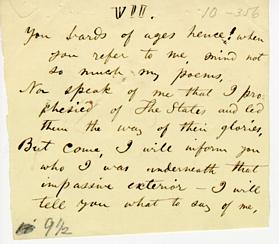 VII.
10-356
You bards of ages hence! when
you refer to me, mind not
so much my poems,
Nor speak of me that I pro-
phesied of The States and led
them the way of their glories,
But come, I will inform you
who I was underneath that
impassive exterior — I will
tell you what to say of me,
9 1/2